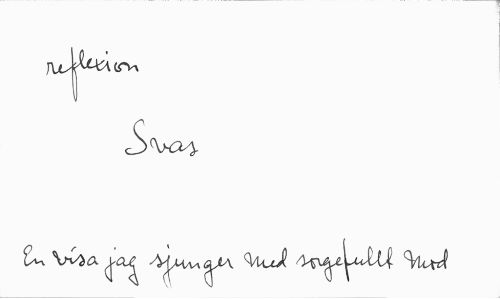 reflexion
Svas
En visa jag sjunger med sorgefullt mod